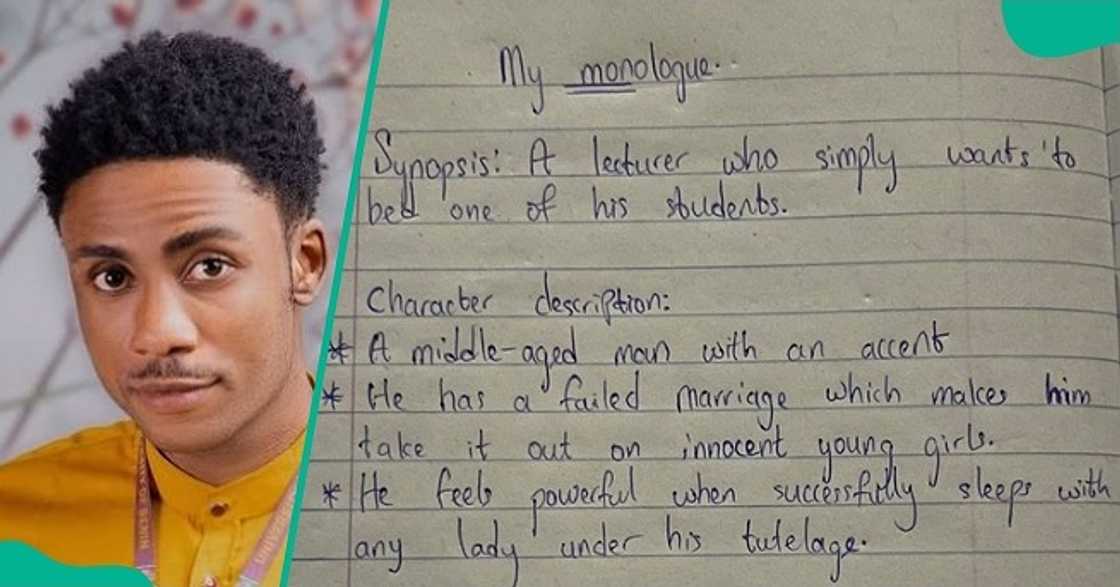 My monologue..
Synopsis: A lecturer who simply wants to
bed one of his students.
Character description:
* A middle-aged man with an accent
* He has a failed marriage which makes him
take it out on innocent young girls.
* He feels powerful when successfully sleeps with
any lady under his tutelage.
OF BENIN